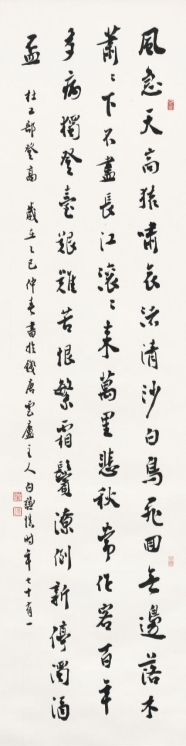 風急天高猿嘯哀渚清沙白鳥飛回無邊落木
蕭〻下不盡長江滾〻來萬里悲秋常作客百年
多病獨登臺艱難苦恨繁霜鬢潦倒新停濁酒
盃
杜工部登高 歲在乙巳仲春書於錢唐雲廬主人白 時年七十有一